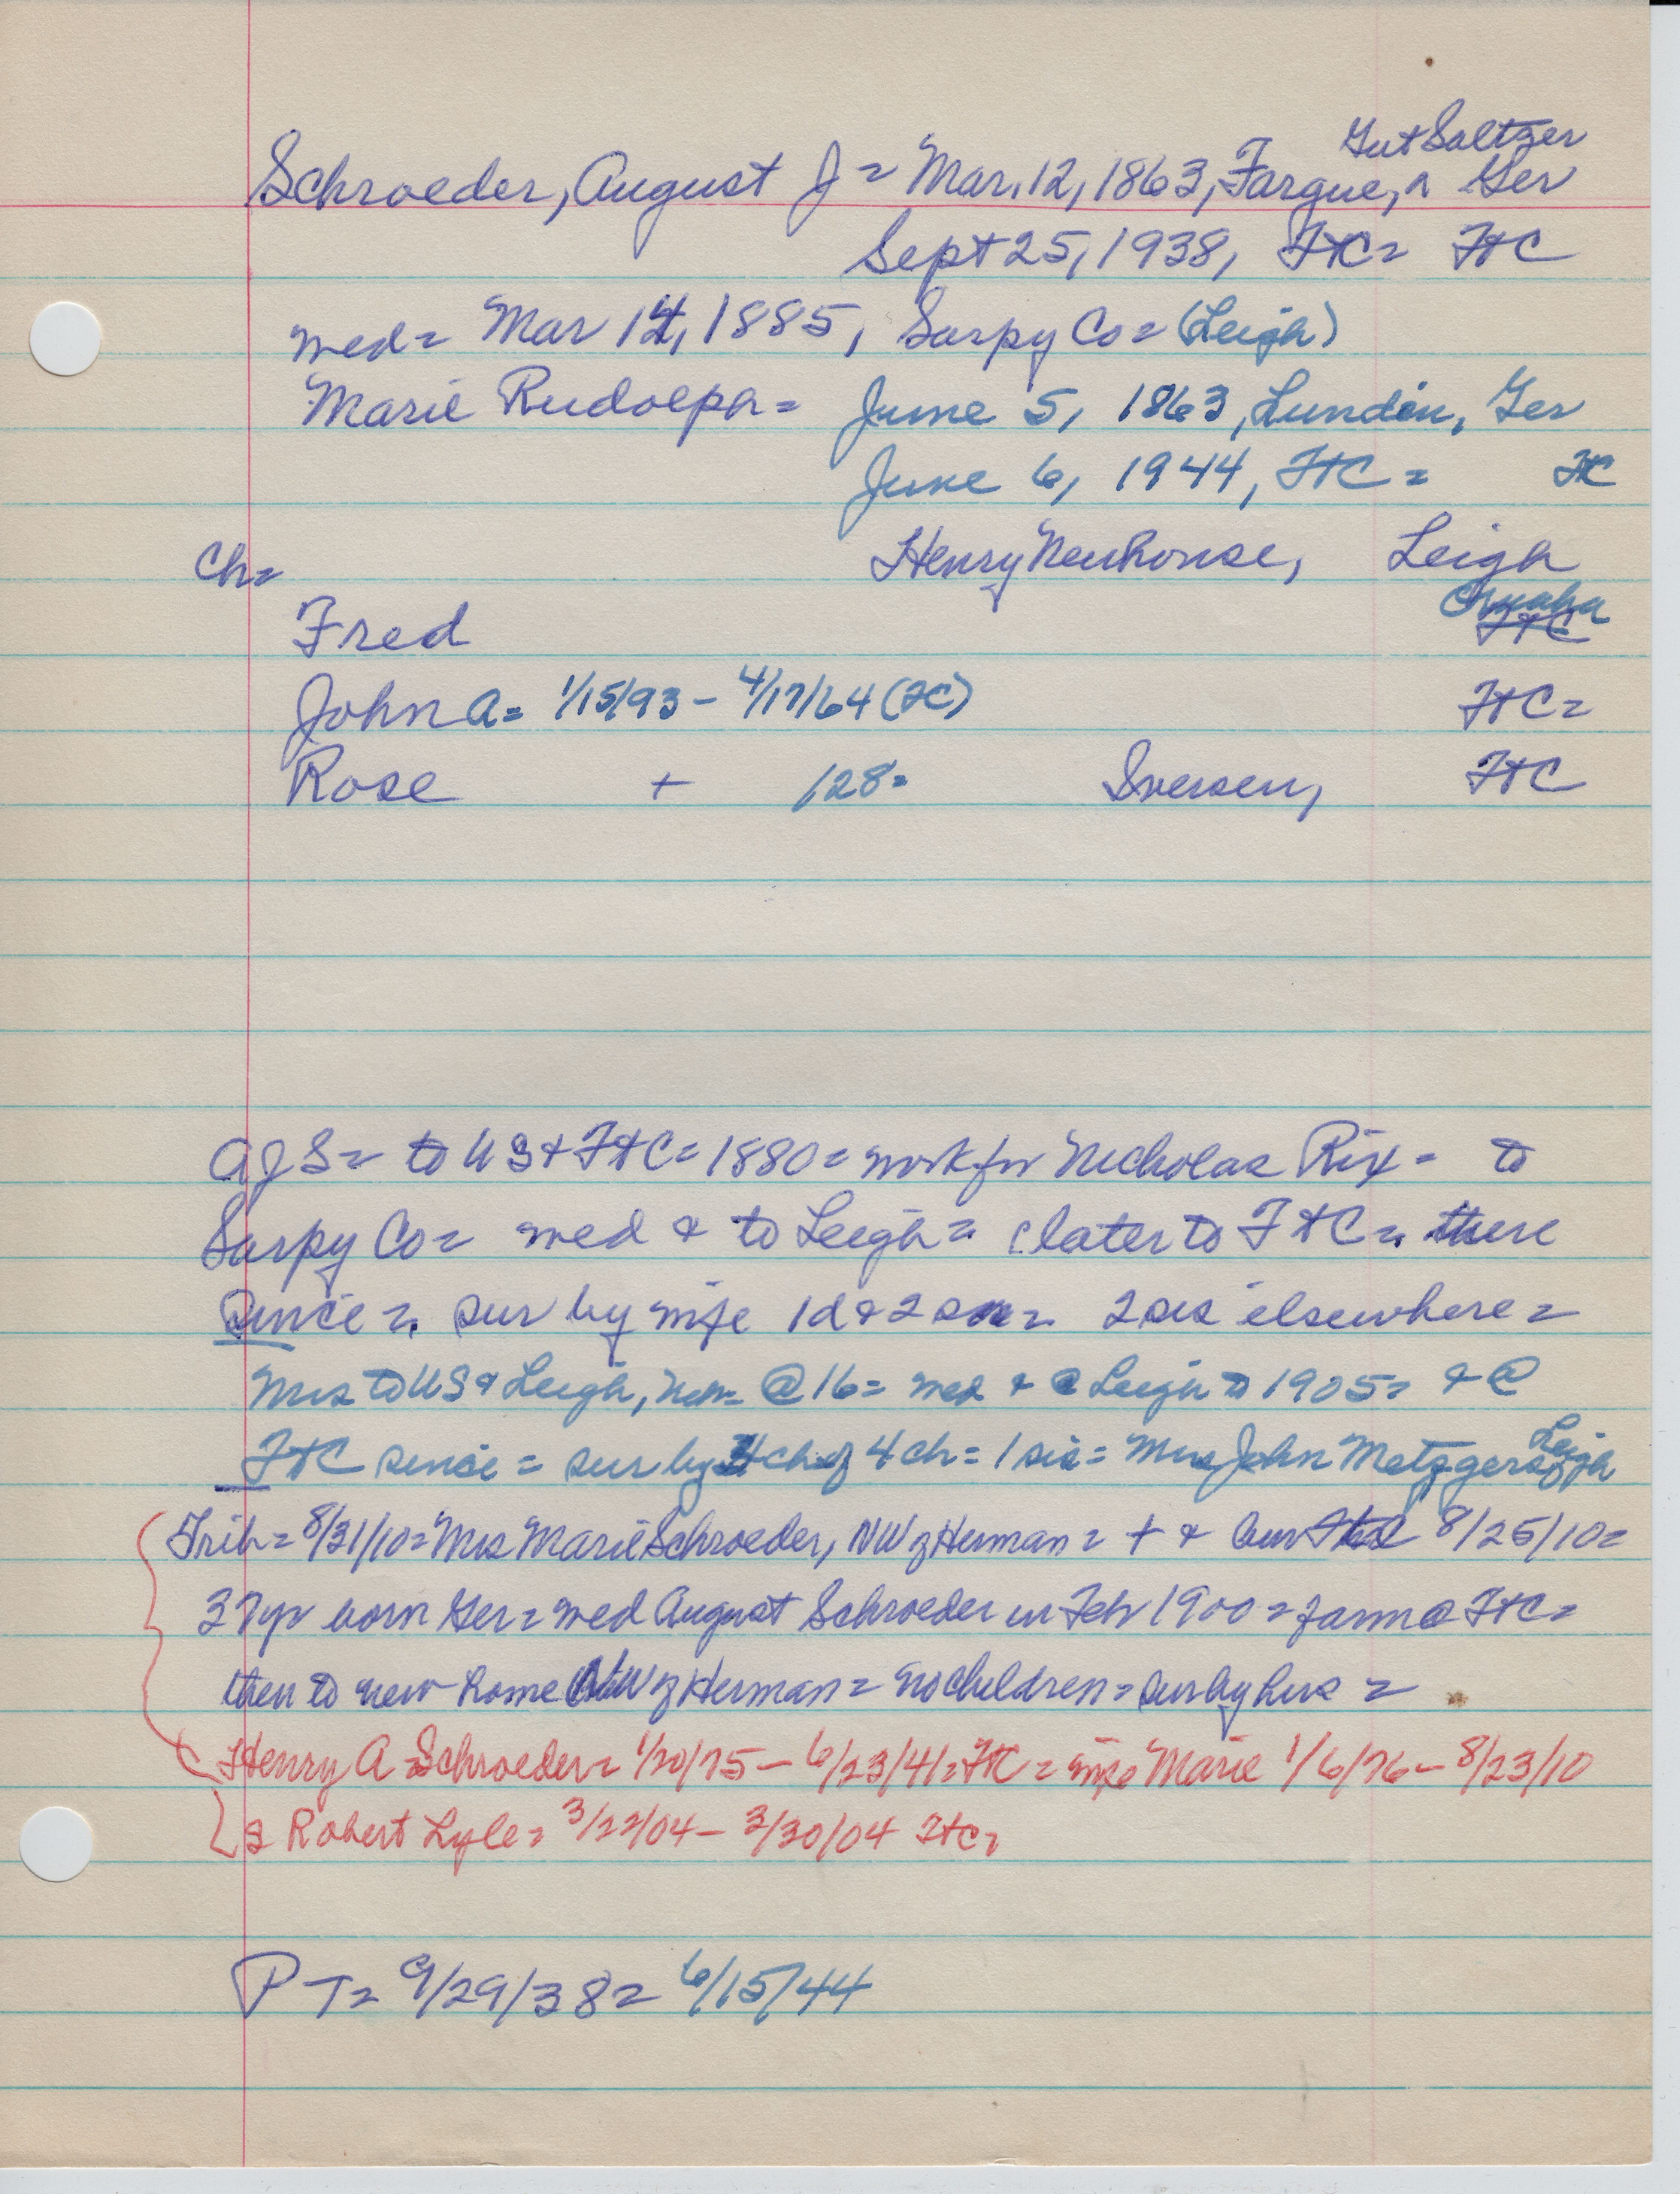 Gut Saltzer
Schroeder, August J = Mar. 12, 1863, Fargue, ^ Ger
Sept 25, 1938, FtC = FtC
med = Mar 14, 1885, Sarpy Co = (Leigh)
Marie Rudolph = June 5, 1863, Lunden, Ger
June 6, 1944, FtC = FtC
Ch = Henry Neuhouse, Leigh
Omaha
Fred FtC
John A = 1/15/93 - 4/17/64 (FC) FtC =
Rose + 128 = Iversen, FtC
AJS = to US & FtC = 1880 = work for Nicholas Rix = to
Sarpy Co = med & to Leigh = later to FtC = there
since = sur by wife 1d & 2 sons = 2 sis elsewhere =
Mrs to US & Leigh, Neb = @ 16 = med & @ Leigh to 1905 = & @
FtC since = sur by ch of 4 ch = 1 sis = Mrs John Metzger, Leigh
Trib = 8/31/10 = Mrs Marie Schroeder, NW of Herman = + & bur 8/25/10 =
37 yr born Ger = med August Schroeder in Feb 1900 = farm @ FtC =
then to new home NW of Herman = no children = sur by hus =
Henry A Schroeder = 1/20/75 - 6/23/41 = FtC = wife Marie 1/6/76 - 8/23/10
s Robert Lyle = 3/22/04 - 3/30/04 FtC =
PT = 9/29/38 = 6/15/44